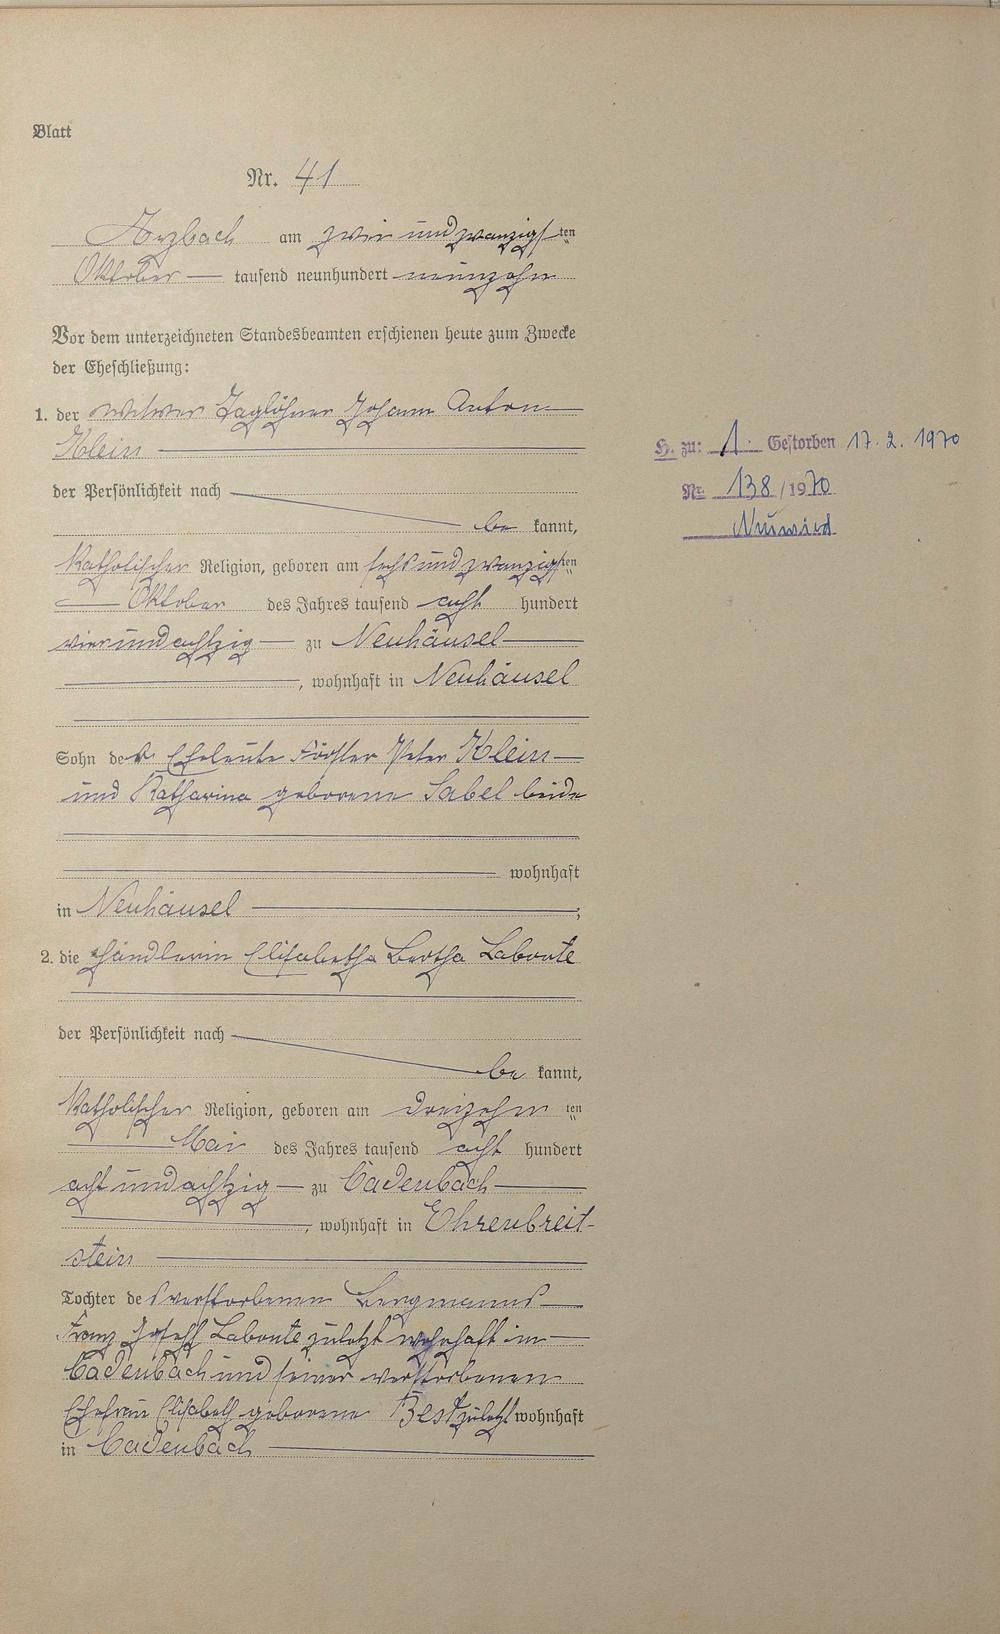 Blatt
Nr. 41
Arzbach am zwei und zwanzigsten
Oktober tausend neunhundert neunzehn
Vor dem unterzeichneten Standesbeamten erschienen heute zum Zwecke
der Eheschließung:
1. der Witwer Taglöhner Johann Anton
Klein
der Persönlichkeit nach
be kannt,
Katholischer Religion, geboren am sechs und zwanzigsten
Oktober des Jahres tausend acht hundert
vierundachtzig zu Neuhäusel
, wohnhaft in Neuhäusel
Sohn der Eheleute Förster Peter Klein
und Katharina geborene Sabel beide
wohnhaft
in Neuhäusel ;
2. die Händlerin Elisabetha Bertha Labonte
der Persönlichkeit nach
be kannt,
Katholischer Religion, geboren am dreizehn ten
Mai des Jahres tausend acht hundert
acht und achtzig zu Cadenbach
, wohnhaft in Ehrenbreit-
stein
Tochter des verstorbenen Bergmanns
Franz Joseph Labonte zuletzt wohnhaft in
Cadenbach und seiner verstorbenen
Ehefrau Elisabeth geborene Best zuletzt wohnhaft
in Cadenbach
H. zu: 1. Gestorben 17. 2. 1970
Nr. 138 /1970
Neuwied